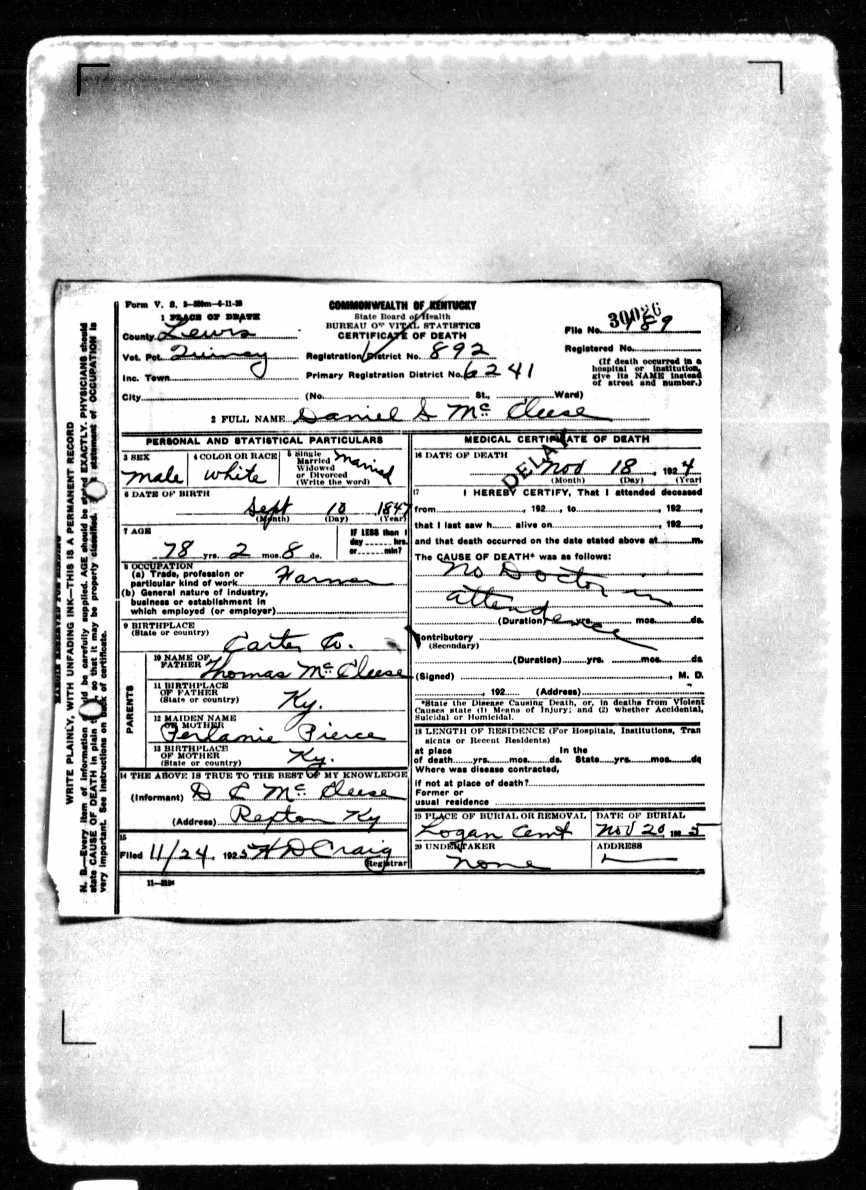 Form V. S. 1-
COMMONWEALTH OF KENTUCKY
State Board of Health
BUREAU OF VITAL STATISTICS
CERTIFICATE OF DEATH
1 PLACE OF DEATH
County Lewis
Vot. Pct. Quincy
Inc. Town
City
Registration District No. 892
Primary Registration District No. 6241
(No. St., Ward)
File No. 189
30026
Registered No.
(If death occurred in a
hospital or institution,
give its NAME instead
of street and number.)
2 FULL NAME Daniel S Mc Cleese
PERSONAL AND STATISTICAL PARTICULARS
3 SEX
male
4 COLOR OR RACE
White
5 Single
Married
Widowed
or Divorced
(Write the word)
Married
6 DATE OF BIRTH
Sept 10 1847
(Month) (Day) (Year)
7 AGE
78 yrs. 2 mos. 8 ds.
IF LESS than 1
day hrs.
or min?
8 OCCUPATION
(a) Trade, profession or
particular kind of work Farmer
(b) General nature of industry,
business or establishment in
which employed (or employer)
9 BIRTHPLACE
(State or country)
Carter Co.
PARENTS
10 NAME OF
FATHER Thomas Mc Cleese
11 BIRTHPLACE
OF FATHER
(State or country)
Ky.
12 MAIDEN NAME
OF MOTHER
Pierce
13 BIRTHPLACE
OF MOTHER
(State or country)
Ky.
14 THE ABOVE IS TRUE TO THE BEST OF MY KNOWLEDGE
(Informant) D L Mc Cleese
(Address) Rexton Ky
15
Filed 11/24, 1925 H D Craig
Registrar
MEDICAL CERTIFICATE OF DEATH
16 DATE OF DEATH
DELAY
Nov 18, 1924
(Month) (Day) (Year)
17 I HEREBY CERTIFY, That I attended deceased
from , 192 , to , 192 ,
that I last saw h alive on , 192 ,
and that death occurred on the date stated above at m.
The CAUSE OF DEATH* was as follows:
No Doctor in
attendence
(Duration) yrs. mos. ds.
Contributory
(Secondary)
(Duration) yrs. mos. ds
(Signed) , M. D.
, 192 (Address)
*State the Disease Causing Death, or, in deaths from Violent
Causes state (1) Means of Injury; and (2) whether Accidental,
Suicidal or Homicidal.
18 LENGTH OF RESIDENCE (For Hospitals, Institutions, Tran
sients or Recent Residents)
at place In the
of death yrs. mos. ds. State yrs. mos. ds
Where was disease contracted,
if not at place of death?
Former or
usual residence
19 PLACE OF BURIAL OR REMOVAL
Logan Cemt
DATE OF BURIAL
Nov 20 1925
20 UNDERTAKER
None
ADDRESS
N. B.—Every item of information should be carefully supplied. AGE should be stated EXACTLY. PHYSICIANS should
state CAUSE OF DEATH in plain so that it may be properly classified. statement of OCCUPATION is
very important. See instructions on back of certificate.
WRITE PLAINLY, WITH UNFADING INK—THIS IS A PERMANENT RECORD
MARGIN RESERVED FOR BINDING